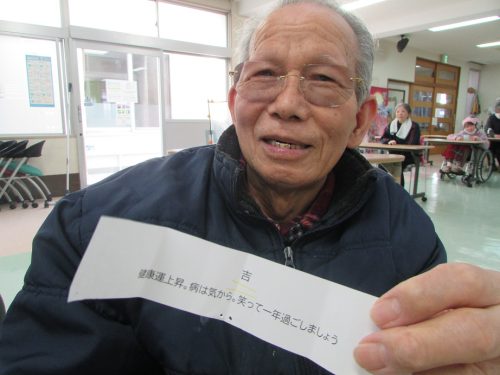 吉
健康運上昇。病は気から。笑って一年過ごしましょう